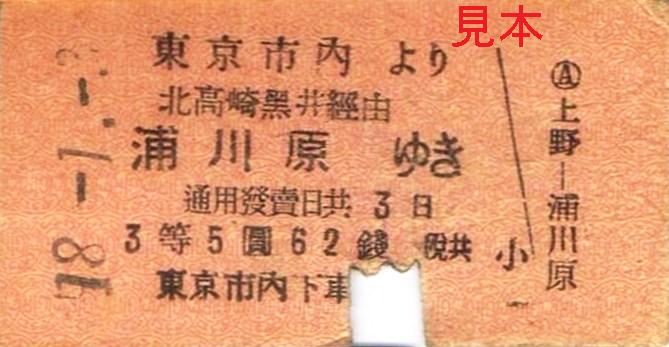 見本
東京市内 より
北高崎黑井經由
浦川原 ゆき
通用發賣日共 3 日
3 等 5 圓 6 2 錢 税共
東京市内下車
小
Ⓐ上野—浦川原
18.-1.-3